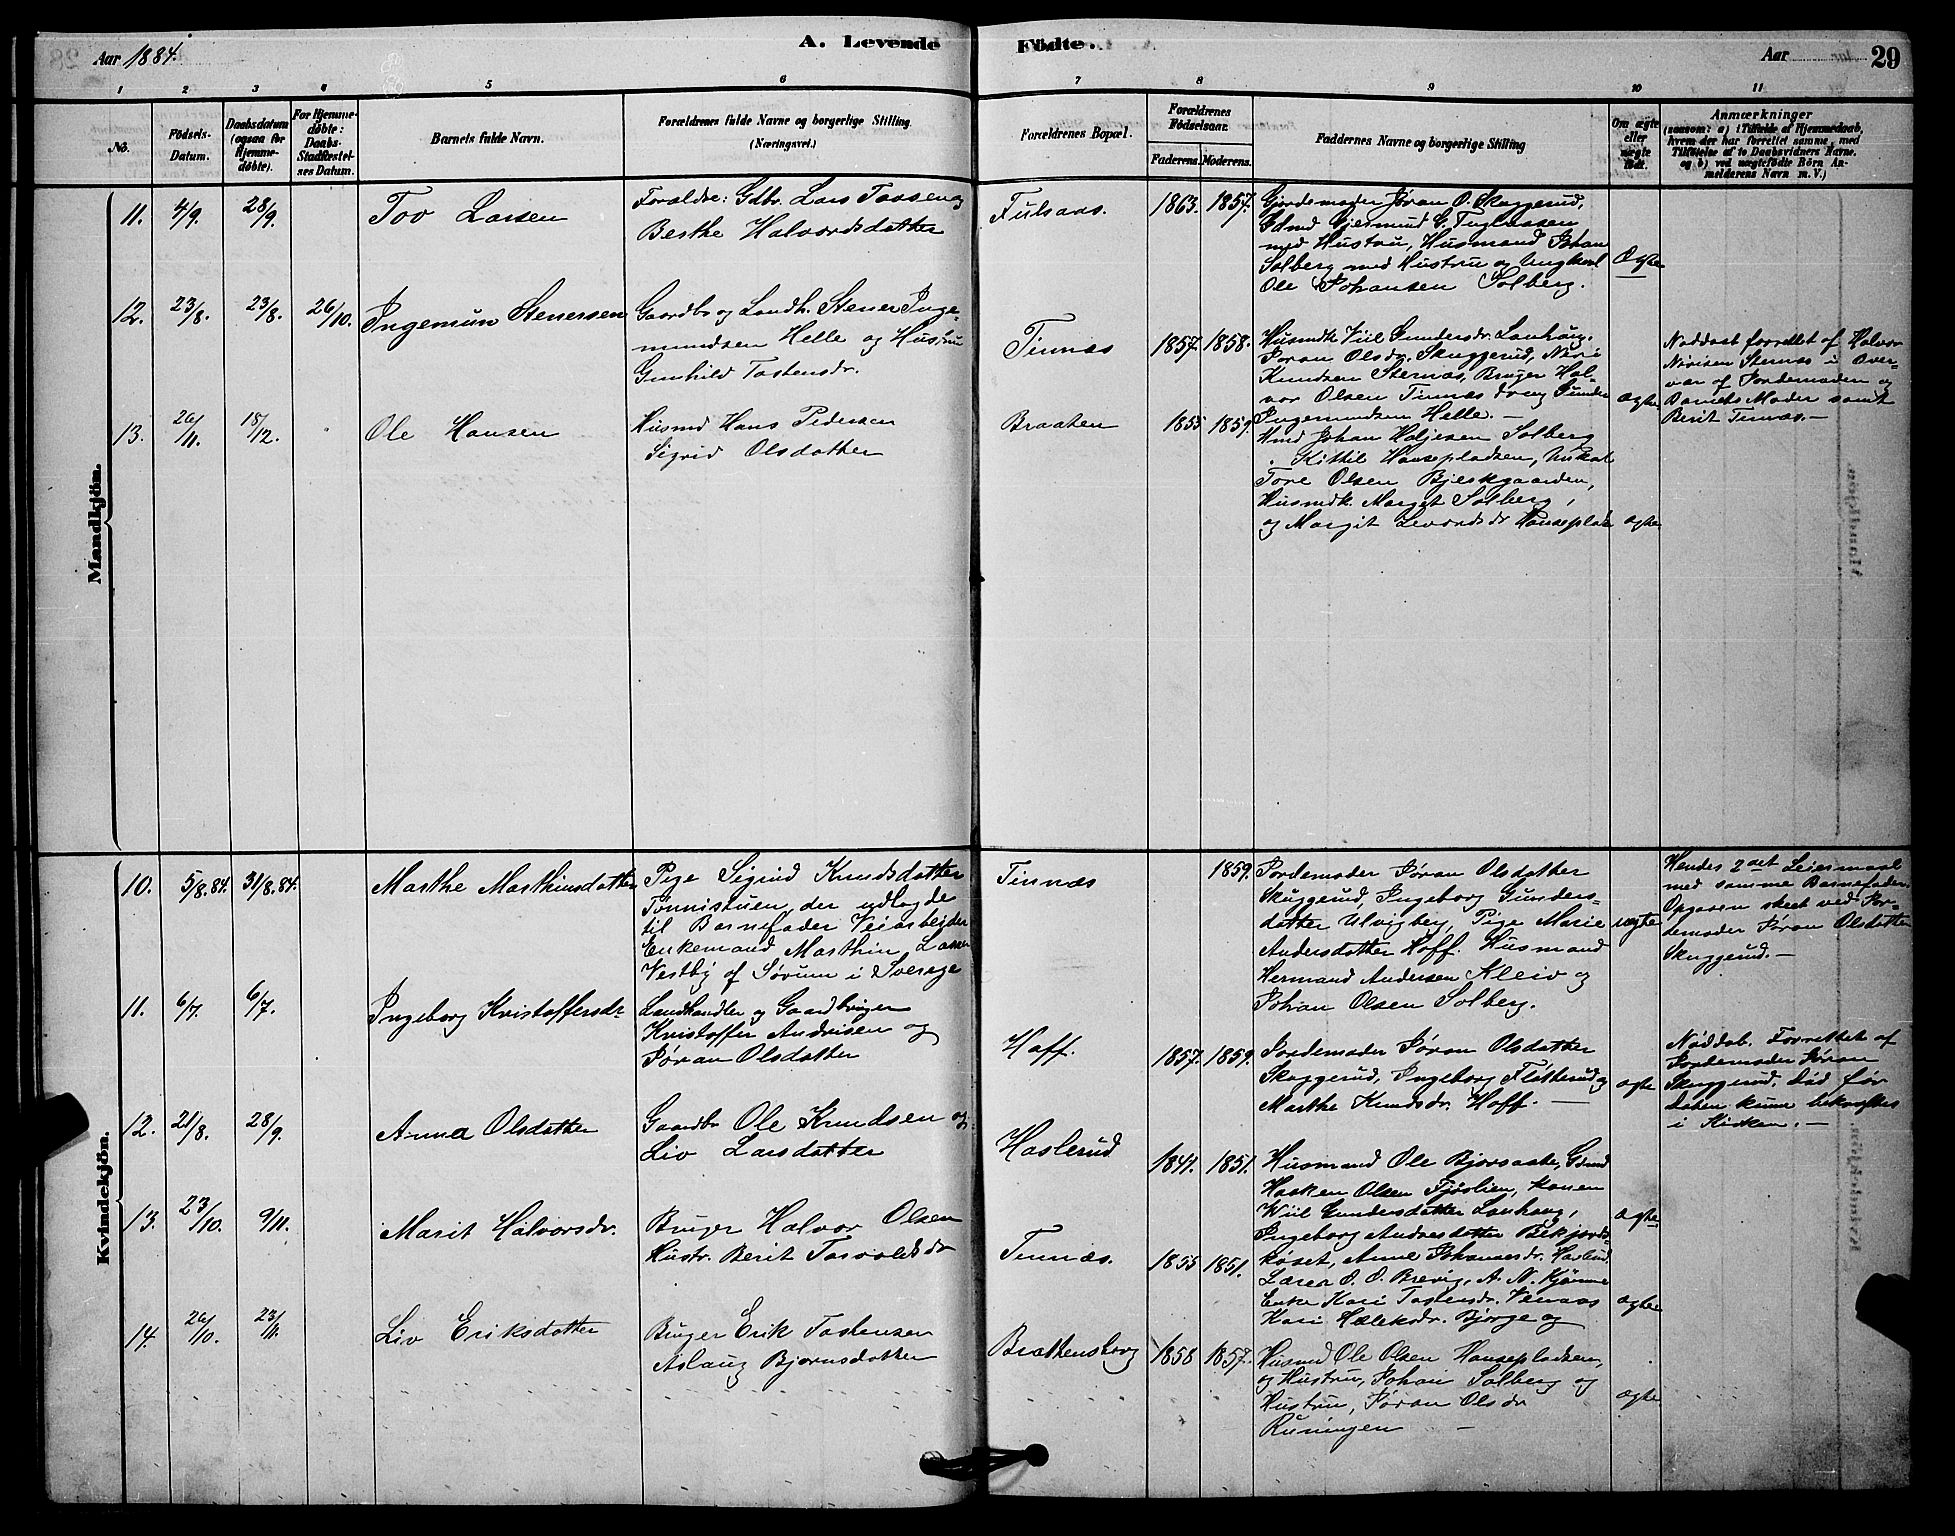 Aar 1884.
A. Levende Födte.
Aar
29
1 2 3 4 5 6 7 8 9 10 11
No.
Födsels-Datum.
Daabsdatum (ogsaa for Hjemmedöbte).
For Hjemmedöbte: Daabs-Stadfæstelses Datum.
Barnets fulde Navn.
Forældrenes fulde Navne og borgerlige Stilling (Næringsvei.)
Forældrenes Bopæl.
Forældrenes Födselsaar.
Faderens. Moderens.
Faddernes Navne og borgerlige Stilling
Om ægte eller uægte födt.
Anmærkninger
(saasom: a) i Tilfælde af Hjemmedaab, hvem der har forrettet samme, med Tilföielse af to Daabsvidners Navne, og b) ved uægtefödte Börn Anmelderens Navn m. V.)
Mandkjön.
11. 4/9. 28/9. Tov Larsen
Forældre: Gdbr. Lars Tovsen og
Berthe Halvordsdatter
Fulsaas. 1863. 1857.
Gjordemoder Jøran O. Skuggerud,
Gdmd Gjermund G.
med Hustru, Husmand Johan
Solberg med Hustru og Ungkarl
Ole Johansen Solberg.
Ægte
12. 23/8. 23/8. 26/10. Ingemun Stenersen
Gaardbr og Landh. Stener Inge-
mundsen Helle og Hustru
Gunhild Tostensdr.
Tinnæs 1857. 1858.
Husmdk Viil Gundersdr. Lauhaug,
Jøran Olsdr. Skuggerud, Niri
Knudsen Sternæs, Bruger Hal-
vor Olsen Tinnæs Dreng Gunder
Ingemundsen Helle.
ægte
Nøddøbt forrettet af Halvor
Nirisen Sternæs i Over-
vær af Jordemoderen og
Barnets Moder samt
Berit Tinnæs.
13. 26/11. 18/12. Ole Hansen
Husmd Hans Pedersen
Sigrid Olsdatter
Braaten 1855 1859.
Hmd Johan Holjesen Solberg
Kittil Hansepladsen, Unkarl
Tore Olsen Bjerkgaarden,
Husmdk. Margit Solberg,
og Margit Levordsdr Hanseplads
ægte
Kvindekjön.
10. 5/8.84. 31/8.84. Marthe Marthinsdatter
Pige Sigrid Knudsdatter
Tønnistuen, der udlagde
til Barnefader Veiarbeider
Enkemand Marthin Larsen
Vestby af Sørum i Sverige
Tinnæs 1859.
Jordemoder Jøran Olsdatter
Skuggerud, Ingeborg Gunders-
datter Ulvigberg, Pige Marie
Andersdatter Hoff. Husmand
Hermand Andersen Kleiv og
Johan Olsen Solberg.
uægte
Hendes 2det Leiermaal
med samme Barnefader.
Opgaven skeet ved Jor-
demoder Jøran Olsdatter
Skuggerud.
11. 6/7. 6/7. Ingeborg Kristoffersdr
Landhandler og Gaardbruger
Kristoffer Andrisen og
Jøran Olsdatter
Hoff. 1857. 1859.
Jordemoder Jøran Olsdatter
Skuggerud, Ingeborg Fløtterud og
Marthe Knudsdr. Hoff.
ægte
Nøddøb. Forrettet af
Jordemoder Jøran
Skuggerud. Død før
Daben kune bekræftes
i Kirken.
12. 21/8. 28/9. Anna Olsdatter
Gaardbr Ole Knudsen og
Liv Larsdatter
Haslerud 1841. 1851.
Husmand Ole Bjørsaate, Gdmd
Haaken Olsen Fjøslien, konen
Viil Gundersdatter Lauhaug,
Ingeborg Andresdatter
Anne Johannesdr. Haslerud.
ægte
13. 23/10. 9/11. Marit Halvorsdr.
Bruger Halvor Olsen
Hustr. Berit Torvoldsdr
Tinnæs. 1855 1851.
Lærer O. O. Brevig, A. N. Kjønne
Enke Kari Tostensdr. Venaas
Kari Hæleksdr. Bjørge og
ægte
14. 26/10. 23/11. Liv Eriksdatter
Bruger Erik Tostensen
Aslaug Bjørnsdatter
Brattensborg 1858 1857.
Husmd Ole Olsen Hansepladsen,
og Hustru, Johan Solberg og
Hustru, Jøran Olsdr
Runingen
ægte